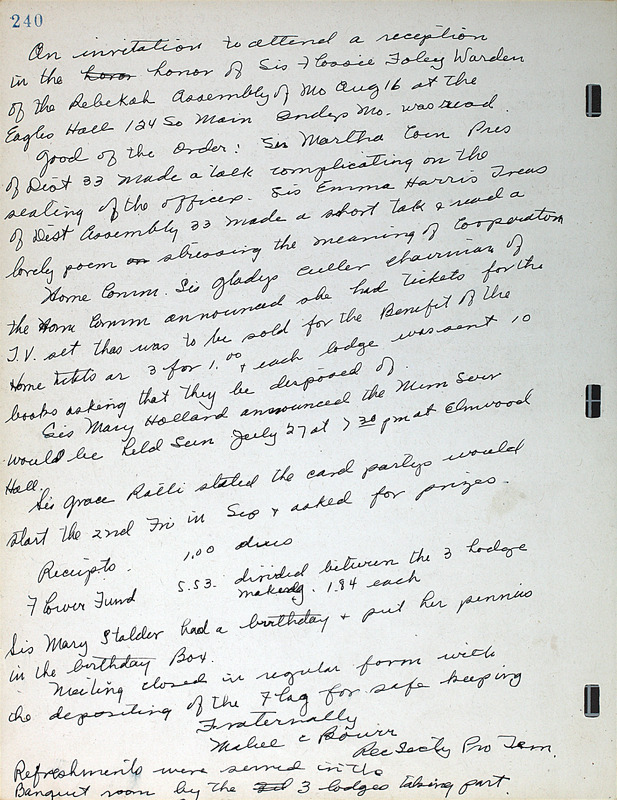 240
An invitation to attend a reception
in the honor honor of Sis Flossie Foley Warden
of the Rebekah Assembly of Mo Aug 16 at the
Eagles Hall 124 So Main Mo. was read.
Good of the Order: Sis Martha Coin Pres
of Dist 33 made a talk complicating on the
seating of the officers. Sis Emma Harris Treas
of Dist Assembly 33 made a short talk & read a
lovely poem on stressing the meaning of Cooperation
Home Comm. Sis Gladys Culler chairman of
the Home Comm announced she had tickets for the
T.V. set thas was to be sold for the Benefit of the
Home tikts ar 3 for 1.00 & each lodge was sent 10
books asking that they be disposed of.
Sis Mary Holland announced the Mem Serv
would be held Sun July 27 at 7 30 pm at Elmwood
Hall.
Sis Grace Raeli stated the card partys would
start the 2nd Fri in Sep & asked for prizes.
Receipts. 1.00 dues
Flower Fund 5.53. divided between the 3 Lodge
making. 1.84 each
Sis Mary Stalder had a birthday & put her pennies
in the birthday Box.
Meeting closed in regular form with
the depositing of the Flag for safe keeping
Fraternally
Mabel C Bowrr
Rec Secty Pro Tem.
Refreshments were served in the
Banquet room by the 3 lodges taking part.